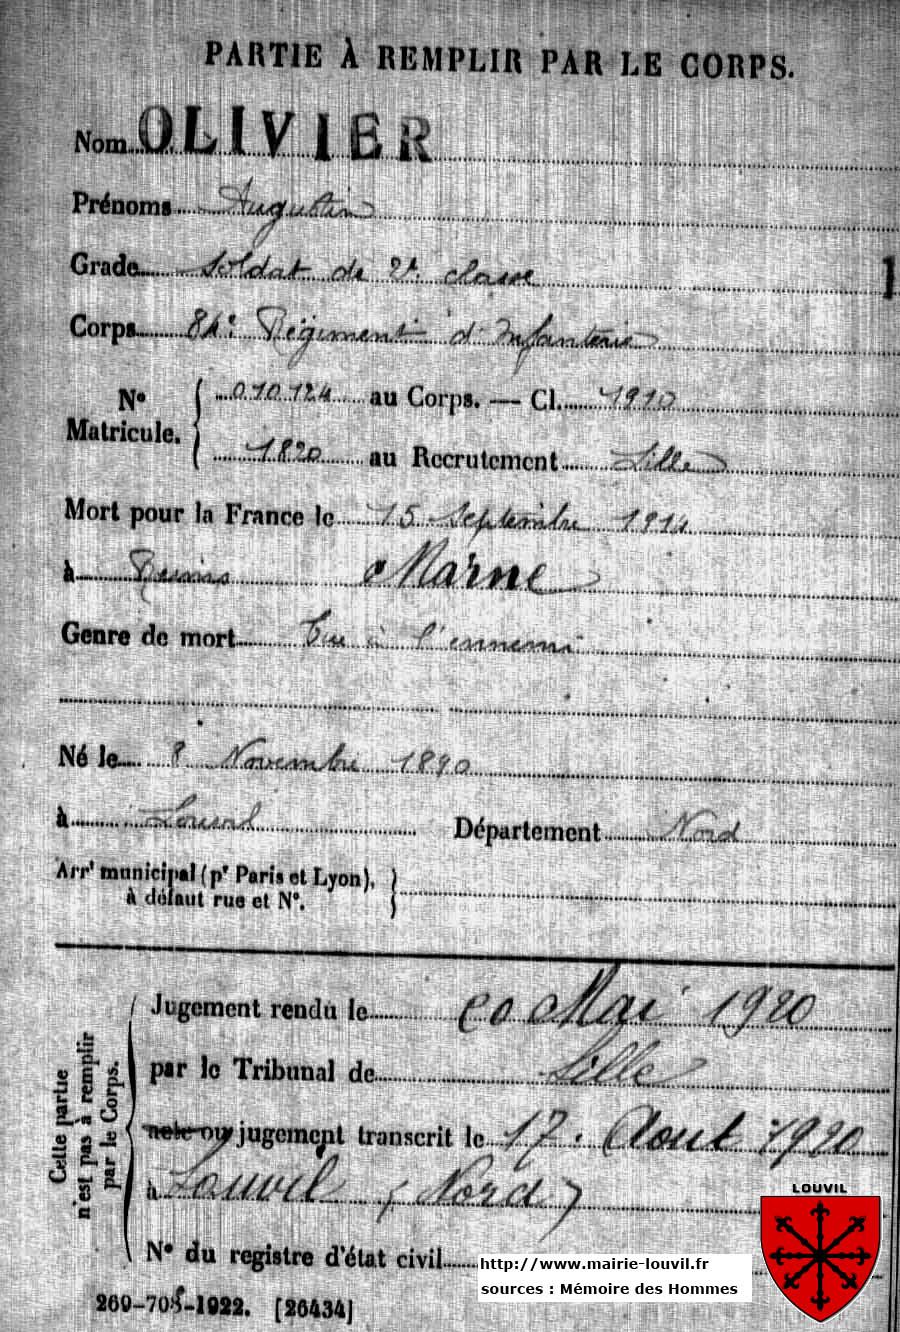 PARTIE À REMPLIR PAR LE CORPS.
Nom OLIVIER
Prénoms Augustin
Grade Soldat de 2e classe
1
Corps 84e Régiment d'Infanterie
No Matricule. 010124 au Corps. — Cl. 1910
1820 au Recrutement Lille
Mort pour la France le 15 Septembre 1914
à Reims Marne
Genre de mort Tué à l'ennemi
Né le 8 Novembre 1890
à Louvil Département Nord
Arrt municipal (pr Paris et Lyon),
à défaut rue et No.
Cette partie n'est pas à remplir par le Corps.
Jugement rendu le 20 Mai 1920
par le Tribunal de Lille
acte ou jugement transcrit le 17 Aout 1920
à Louvil (Nord)
No du registre d'état civil
LOUVIL
http://www.mairie-louvil.fr
sources : Mémoire des Hommes
1922. [26434]